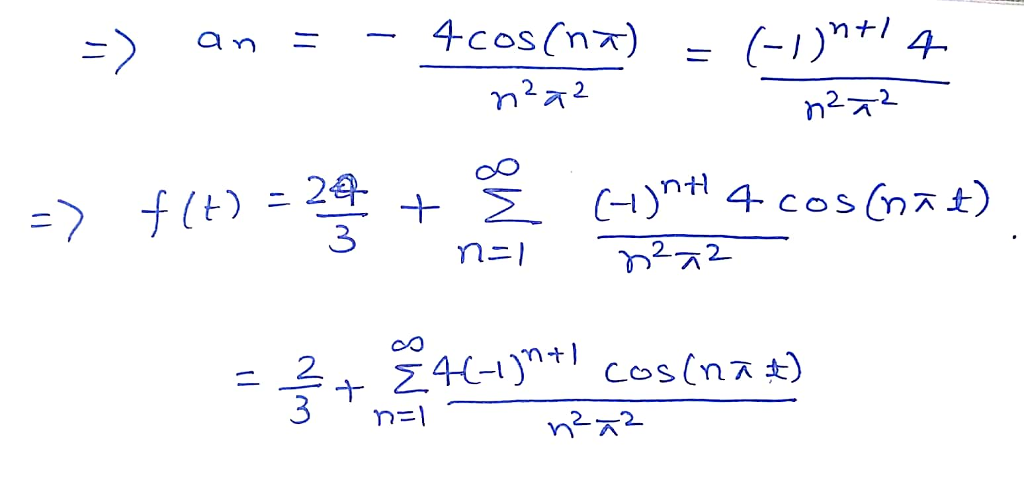 => an = - 4cos(nπ) / n²π² = (-1)ⁿ⁺¹ 4 / n²π²
=> f(t) = 2 / 3 + ∞ Σ n=1 (-1)ⁿ⁺¹ 4 cos(nπt) / n²π² .
= 2 / 3 + ∞ Σ n=1 4(-1)ⁿ⁺¹ cos(nπt) / n²π²